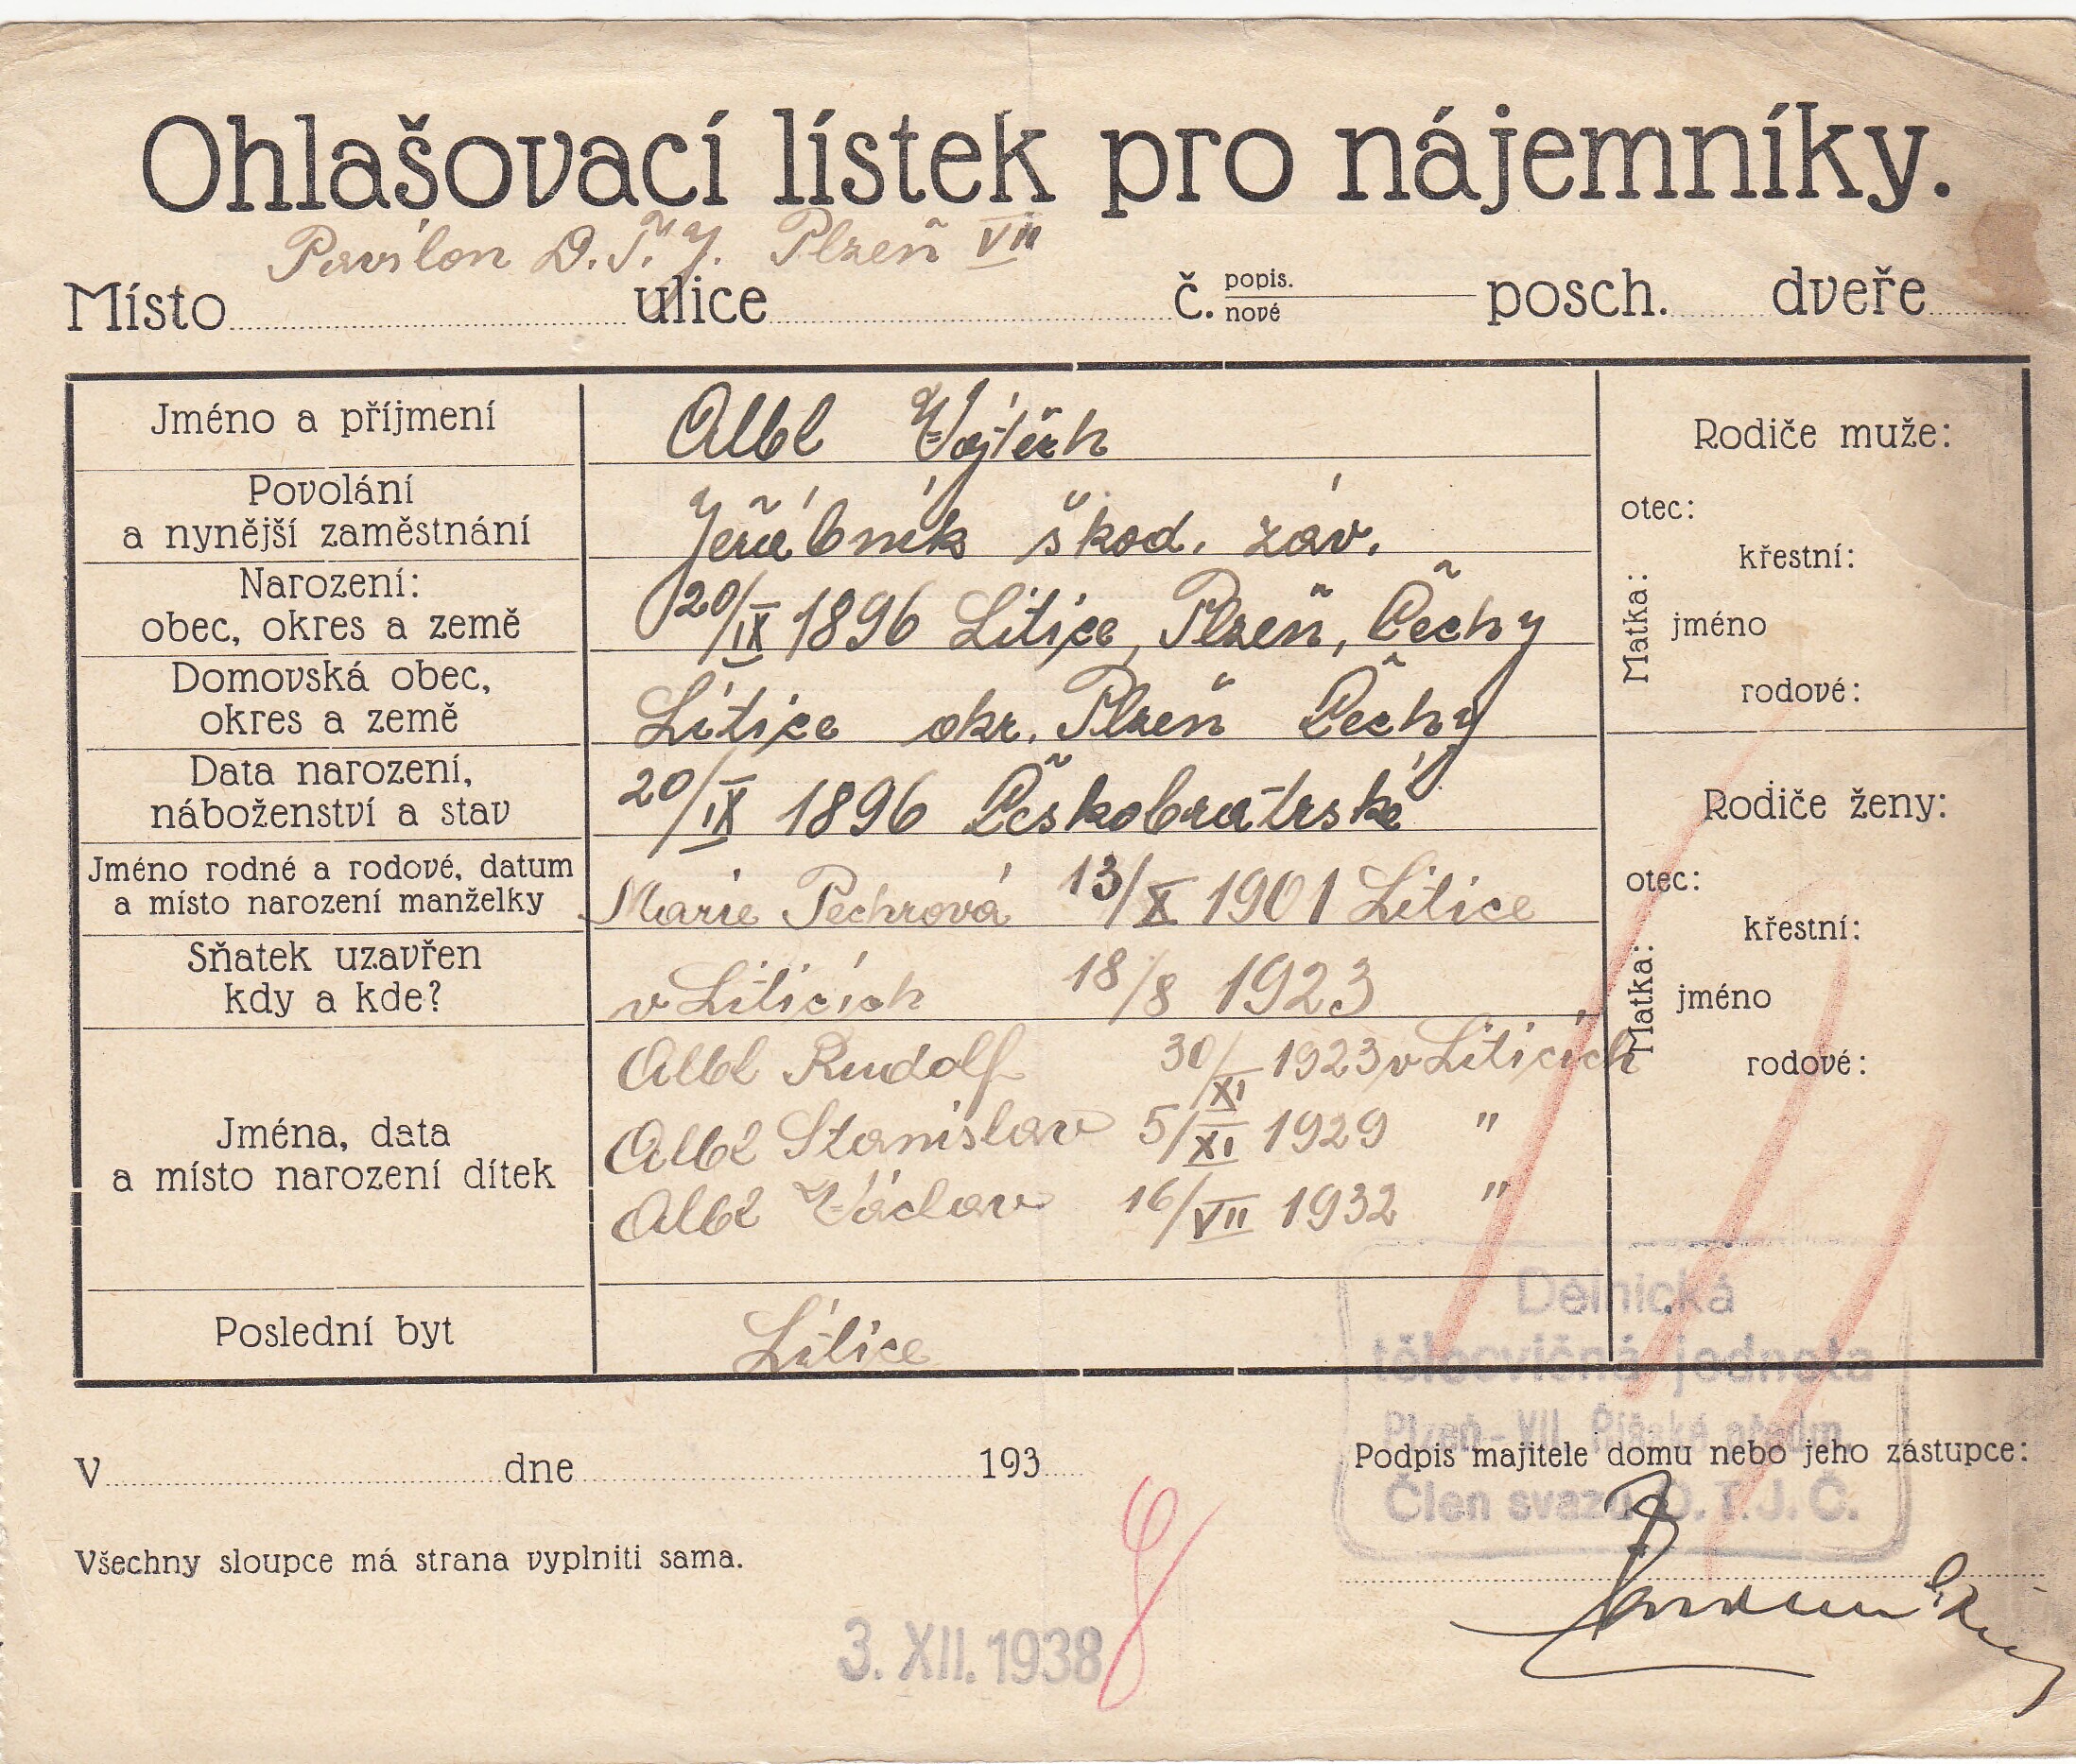 Ohlašovací lístek pro nájemníky.
Pavilon D.T.J. Plzeň VII
Místo ulice č. popis. nové posch. dveře
Jméno a příjmení Albl Vojtěch
Povolání
a nynější zaměstnání Jeřábník škod. záv.
Narození:
obec, okres a země 20/IX 1896 Litice, Plzeň, Čechy
Domovská obec,
okres a země Litice okr. Plzeň Čechy
Data narození,
náboženství a stav 20/IX 1896 Českobratrské
Jméno rodné a rodové, datum
a místo narození manželky Marie Pechrová 13/X 1901 Litice
Sňatek uzavřen
kdy a kde? v Liticích 18/8 1923
Jména, data
a místo narození dítek
Albl Rudolf 30/XI 1923 v Liticích
Albl Stanislav 5/XI 1929 "
Albl Václav 16/VII 1932 "
Poslední byt Litice
Rodiče muže:
otec:
Matka:
křestní:
jméno
rodové:
Rodiče ženy:
otec:
Matka:
křestní:
jméno
rodové:
Dělnická
tělocvičná jednota
Plzeň-VII. Říšské předm.
Člen svazu D.T.J.Č.
V dne 193
Podpis majitele domu nebo jeho zástupce:
Všechny sloupce má strana vyplniti sama.
3. XII. 1938